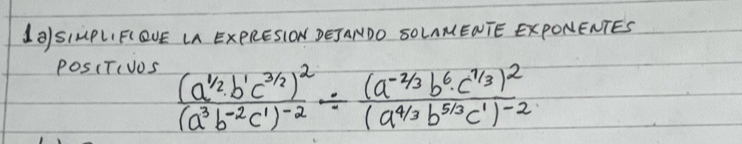 1a) SIMPLIFIQUE LA EXPRESION DEJANDO SOLAMENTE EXPONENTES
POSITIVOS
(a^1/2 . b^1 c^3/2)^2 / (a^3 b^-2 c^1)^-2 ÷ (a^-2/3 b^6 . c^1/3)^2 / (a^4/3 b^5/3 c^1)^-2